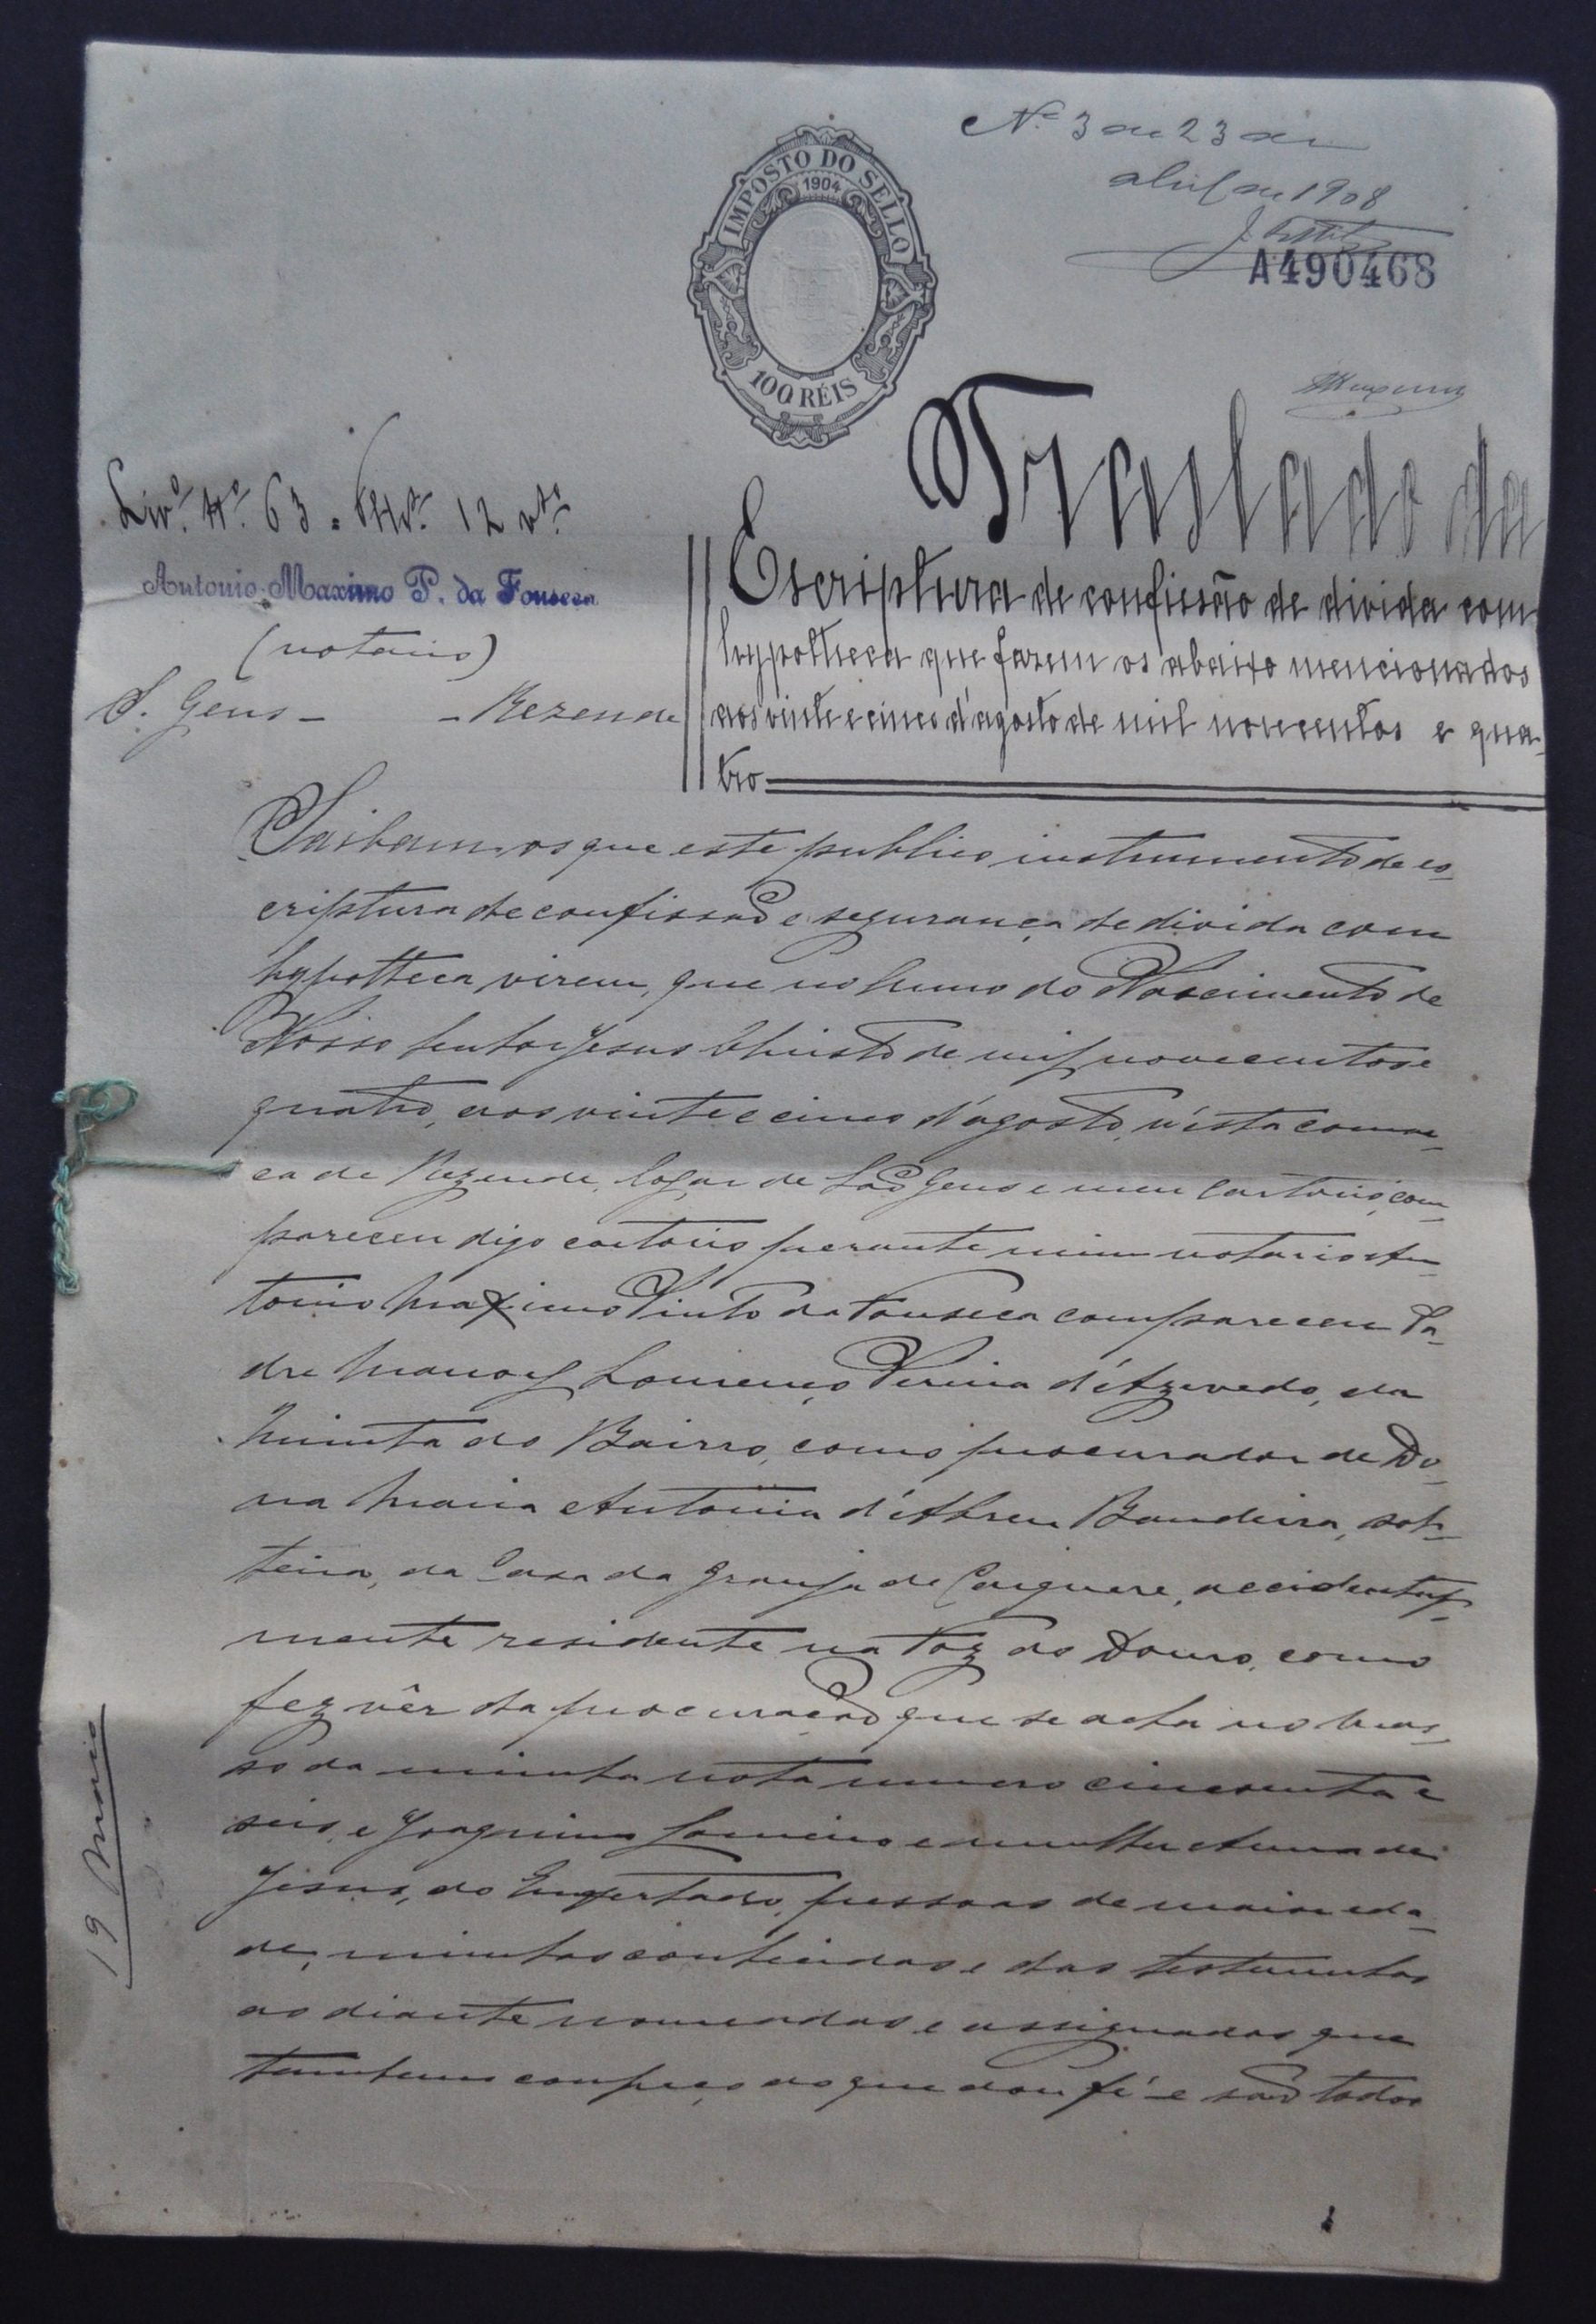 Nº 3 de 23 de
abril de 1908
IMPOSTO DO SELLO
1904
100 RÉIS
A490468
Livº. nº. 63 = 12 vº.
Antonio Maximo P. da Fonseca
(notario)
S. Gens - - Rezende
Traslado da
Escriptura de confissão de divida com
hypotheca que fazem os abaixo mencionados
aos vinte e cinco d'agosto de mil novecentos e qua-
tro
Saibam os que este publico instrumento de es-
criptura de confissão e segurança de divida com
hypotheca virem, que no Anno do Nascimento de
Nosso Senhor Jesus Christo de mil novecentos e
quatro, aos vinte e cinco d'agosto, n'esta comar-
ca de Rezende, logar de São Gens e meu cartorio, com-
pareceu digo cartorio perante mim notario An-
tonio Maximo Pinto da Fonseca compareceu Pa-
dre Manoel Lourenço Pereira d'Azevedo, da
Quinta do Bairro, como procurador de Do-
na Maria Antonia d'Abreu Bandeira, sol-
teira, da Casa da Granja de Cárquere, accidental-
mente residente na Foz do Douro, como
fez vêr da procuração que se acha no mas-
so da minha nota numero cincoenta e
seis, e Joaquim Loureiro e mulher Anna de
Jesus, do Enxertado, pessoas de maior eda-
de, minhas conhecidas e das testemunhas
ao diante nomeadas e assignadas que
tambem conheço do que dou fé - e são todos
19 Março